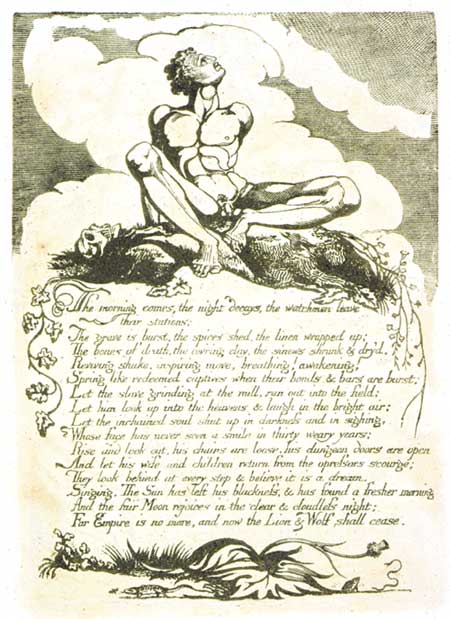 The morning comes, the night decays, the watchmen leave
their stations;
The grave is burst, the spices shed, the linen wrapped up;
The bones of death, the cov'ring clay, the sinews shrunk & dry'd.
Reviving shake, inspiring move, breathing! awakening!
Spring like redeemed captives when their bonds & bars are burst;
Let the slave grinding at the mill, run out into the field;
Let him look up into the heavens & laugh in the bright air;
Let the inchained soul shut up in darkness and in sighing,
Whose face has never seen a smile in thirty weary years;
Rise and look out, his chains are loose, his dungeon doors are open.
And let his wife and children return from the opressors scourge;
They look behind at every step & believe it is a dream.
Singing. The Sun has left his blackness, & has found a fresher morning
And the fair Moon rejoices in the clear & cloudless night;
For Empire is no more, and now the Lion & Wolf shall cease.